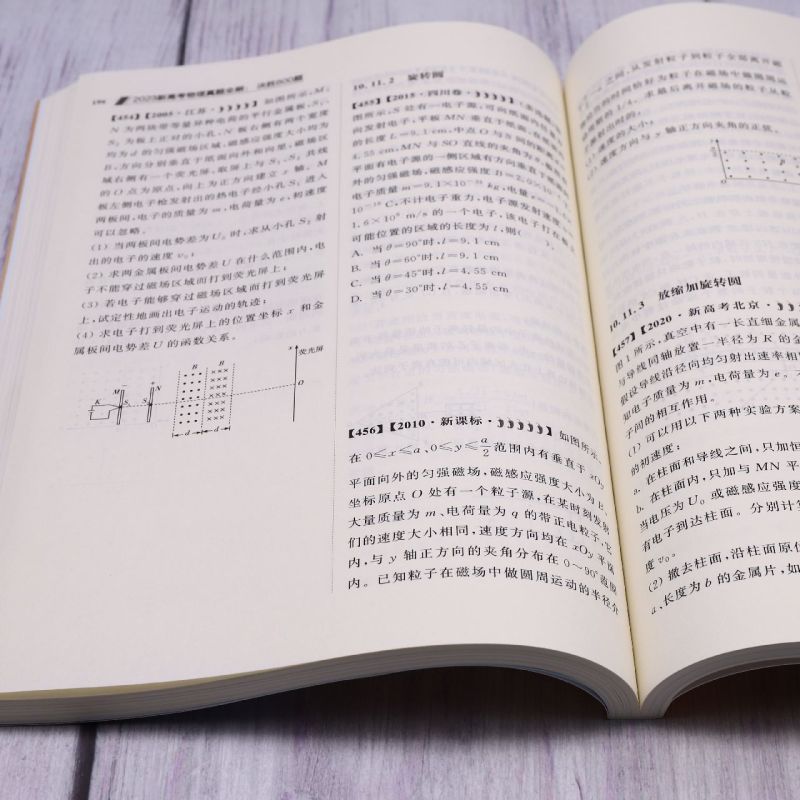 196 2023新高考物理真题全解 决胜800题
【454】【2005·江苏· 】 如图所示,M、
N 为两块带等量异种电荷的平行金属板,S₁、
S₂ 为板上正对的小孔,N 板右侧有两个宽度
均为 d 的匀强磁场区域,磁感应强度大小均为
B,方向分别垂直于纸面向外和向里,磁场区
域右侧有一个荧光屏,取屏上与 S₁、S₂ 共线
的 O 点为原点,向上为正方向建立 x 轴。M
板左侧电子枪发射出的热电子经小孔 S₁ 进入
两板间,电子的质量为 m,电荷量为 e,初速度
可以忽略。
(1) 当两板间电势差为 U₀ 时,求从小孔 S₂ 射
出的电子的速度 v₀;
(2) 求两金属板间电势差 U 在什么范围内,电
子不能穿过磁场区域而打到荧光屏上;
(3) 若电子能够穿过磁场区域而打到荧光屏
上,试定性地画出电子运动的轨迹;
(4) 求电子打到荧光屏上的位置坐标 x 和金
属板间电势差 U 的函数关系。
K M S₁ N S₂ B B x 荧光屏 O
d d
10.11.2 旋转圆
【455】【2015·四川卷· 】
图所示,S 处有一电子源,可向纸面
向发射电子,平板 MN 垂直于纸面,在纸面内
的长度 L=9.1 cm,中点 O 与 S 间的距离
4.55 cm,MN 与 SO 直线的夹角为 θ,板所在
平面有电子源的一侧区域有方向垂直于纸面
外的匀强磁场,磁感应强度 B=2.0×10
电子质量 m=9.1×10⁻³¹ kg,电量
10⁻¹⁹ C,不计电子重力,电子源发射速度
1.6×10⁶ m/s 的一个电子,该电子打在板上
可能位置的区域的长度为 l,则( )。
A. 当 θ=90°时,l=9.1 cm
B. 当 θ=60°时,l=9.1 cm
C. 当 θ=45°时,l=4.55 cm
D. 当 θ=30°时,l=4.55 cm
【456】【2010·新课标· 】 如图所示,
在 0≤x≤a、0≤y≤a/2 范围内有垂直于 xOy
平面向外的匀强磁场,磁感应强度大小为 B。
坐标原点 O 处有一个粒子源,在某时刻发射
大量质量为 m、电荷量为 q 的带正电粒子,它
们的速度大小相同,速度方向均在 xOy 平面
内,与 y 轴正方向的夹角分布在 0～90°范围
内。已知粒子在磁场中做圆周运动的半径介
之间,从发射粒子到粒子全部离开磁
的时间恰好为粒子在磁场中做圆周运
周期的 1/4。求最后离开磁场的粒子从粒
速度的大小;
速度方向与 y 轴正方向夹角的正弦。
10.11.3 放缩加旋转圆
【457】【2020·新高考北京·
图1所示,真空中有一长直细金属
与导线同轴放置一半径为 R 的金
假设导线沿径向均匀射出速率相
知电子质量为 m,电荷量为 e。不
子间的相互作用。
(1) 可以用以下两种实验方案
的初速度:
a. 在柱面和导线之间,只加恒
b. 在柱面内,只加与 MN 平
当电压为 U₀ 或磁感应强度
有电子到达柱面。分别计算
度 v₀。
(2) 撤去柱面,沿柱面原位
a、长度为 b 的金属片,如